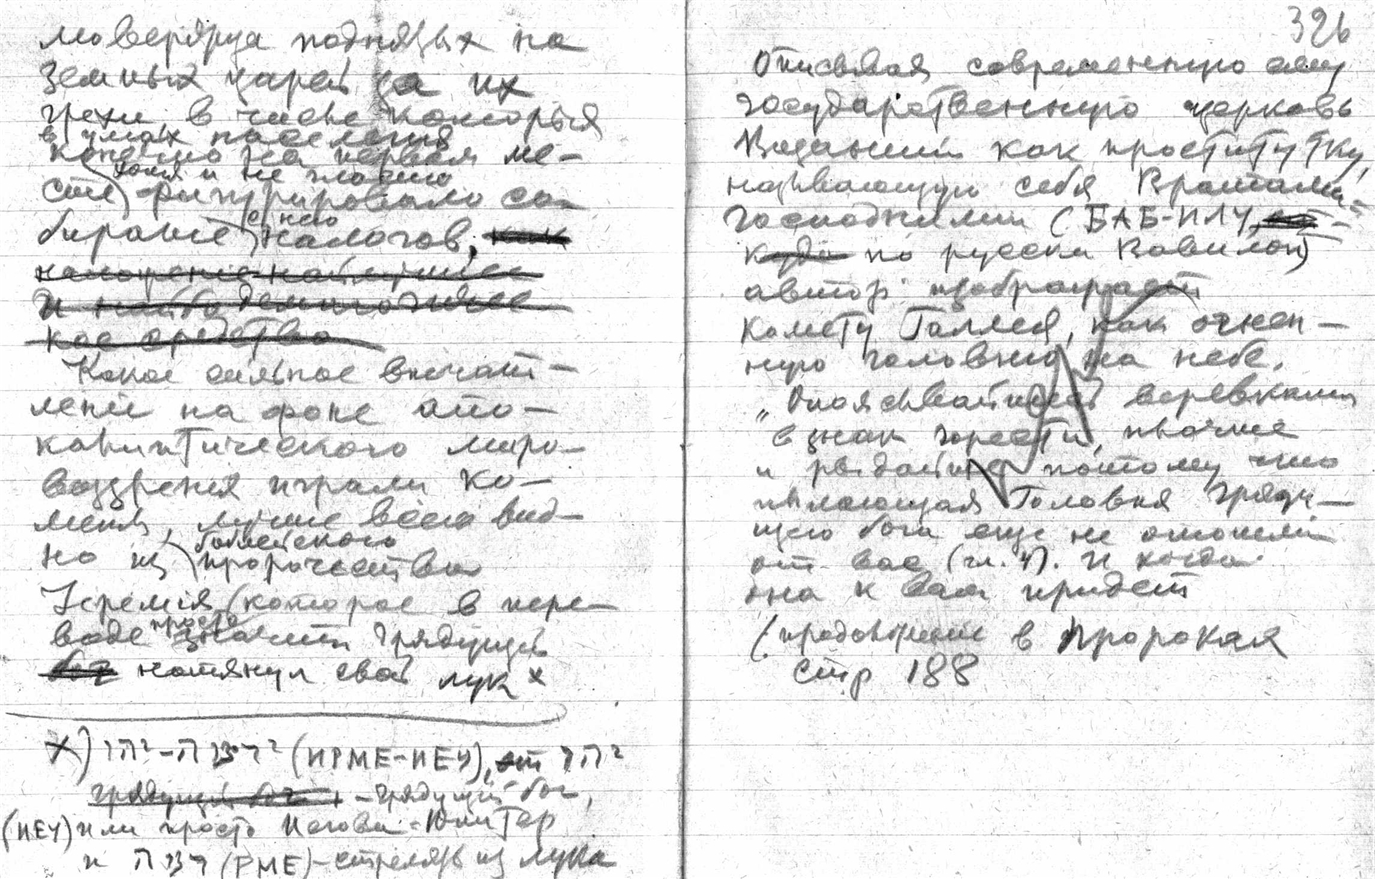 подня на
земных царей за их
грехи, в числе которых
в умах населения
конечно на первом ме-
хотя и не гласно
сте фигурировало со-
бирание с него налогов, как
Какое сильное впечат-
ление на фоне апо-
калиптического миро-
воззрения играли ко-
меты, лучше всего вид-
но из библейского
пророчества
Іеремія, (которое в пере-
воде просто значит Грядущій
натянул свой лук х
х) (ИРМЕ-ИЕУ), от
Грядущій бог,
(ИЕУ) или просто Иегова-Юпитер
и (РМЕ) - стрелять из лука
326
Описывая современную ему
государственную церковь
как проститутку,
называющую себя Вратами
господними (БАБ-ИЛУ,
по русски Вавилон)
автор изображает
комету Галлея, как огнен-
ную головню на небе.
„Опоясывайтесь веревками
в знак горести, плачьте
и рыдайте потому что
пылающая Головня Гряду-
щего бога еще не отошла
от вас (гл. 4). И когда
она к вам придет
(продолжение в Пророках
стр 188